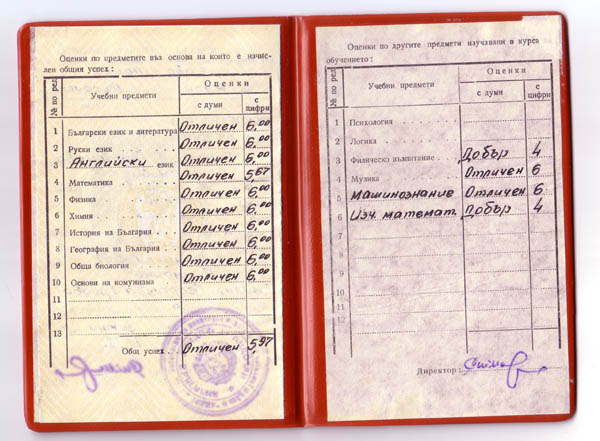 Оценки по предметите въз основа на които е начис-
лен общия успех:
№ по ред
Учебни предмети
Оценки
с думи
с цифри
1 Български език и литература Отличен 6,00
2 Руски език Отличен 6,00
3 Английски език Отличен 6,00
4 Математика Отличен 5,67
5 Физика Отличен 6,00
6 Химия Отличен 6,00
7 История на България Отличен 6,00
8 География на България Отличен 6,00
9 Обща биология Отличен 6,00
10 Основи на комунизма Отличен 6,00
11
12
13
Общ успех Отличен 5,97
Оценки по другите предмети изучавани в курса
обучението:
№ по ред
Учебни предмети
Оценки
с думи
с цифри
1 Психология
2 Логика
3 Физическо възпитание Добър 4
4 Музика Отличен 6
5 Машинознание Отличен 6
6 Изч. математ. Добър 4
7
8
9
10
11
12
Директор: